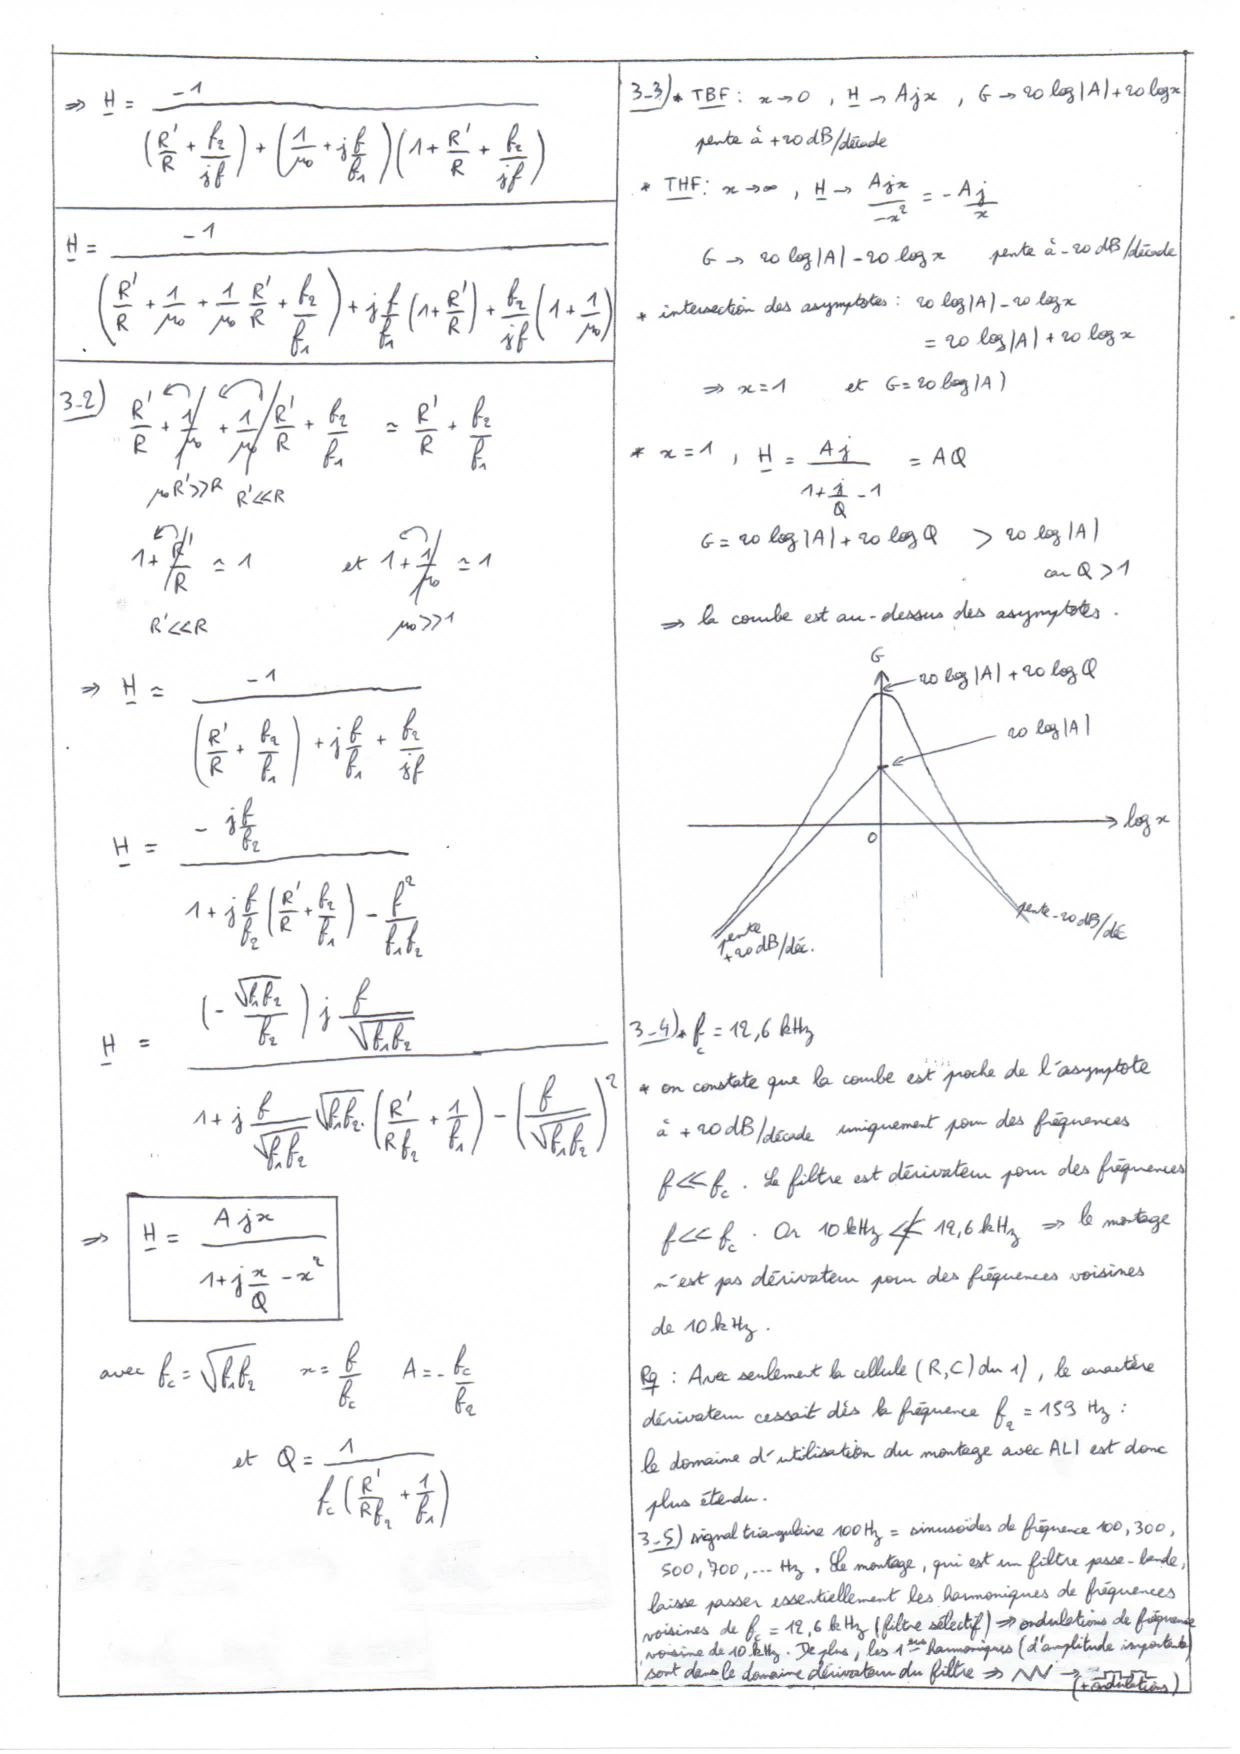 ⇒ H = -1 / ((R'/R + f₂/jf) + (1/μ₀ + j f/f₁)(1 + R'/R + f₂/jf))
H = -1 / ((R'/R + 1/μ₀ + 1/μ₀ R'/R + f₂/f₁) + j f/f₁ (1 + R'/R) + f₂/jf (1 + 1/μ₀))
3-2) R'/R + 1/μ₀ + 1/μ₀ R'/R + f₂/f₁ ≃ R'/R + f₂/f₁
μ₀R'>>R R'<<R
1 + R'/R ≃ 1 et 1 + 1/μ₀ ≃ 1
R'<<R μ₀>>1
⇒ H ≃ -1 / ((R'/R + f₂/f₁) + j f/f₁ + f₂/jf)
H = - j f/f₂ / (1 + j f/f₂ (R'/R + f₂/f₁) - f²/f₁f₂)
H = (- √f₁f₂/f₂) j f/√f₁f₂ / (1 + j f/√f₁f₂ √f₁f₂ . (R'/Rf₂ + 1/f₁) - (f/√f₁f₂)²)
⇒ H = A jx / (1 + j x/Q - x²)
avec f_c = √f₁f₂ x = f/f_c A = - f_c/f₂
et Q = 1 / (f_c (R'/Rf₂ + 1/f₁))
3-3) * TBF : x → 0 , H → A j x , G → 20 log|A| + 20 log x
pente à +20 dB/décade
* THF : x → ∞ , H → A jx/-x² = - A j/x
G → 20 log|A| - 20 log x pente à -20 dB/décade
* intersection des asymptotes : 20 log|A| - 20 log x
= 20 log|A| + 20 log x
⇒ x = 1 et G = 20 log|A|
* x = 1 , H = A j / (1 + j/Q - 1) = AQ
G = 20 log|A| + 20 log Q > 20 log|A|
car Q > 1
⇒ la courbe est au-dessus des asymptotes.
G
20 log|A| + 20 log Q
20 log|A|
log x
0
pente +20 dB/déc.
pente -20 dB/déc
3-4) * f_c = 12,6 kHz
* on constate que la courbe est proche de l'asymptote
à +20 dB/décade uniquement pour des fréquences
f << f_c . Le filtre est dérivateur pour des fréquences
f << f_c . Or 10 kHz ≮≮ 12,6 kHz ⇒ le montage
n'est pas dérivateur pour des fréquences voisines
de 10 kHz.
Rq : Avec seulement la cellule (R,C) du 1) , le caractère
dérivateur cessait dès la fréquence f₂ = 159 Hz :
le domaine d'utilisation du montage avec ALI est donc
plus étendu.
3-5) signal triangulaire 100 Hz = sinusoïdes de fréquence 100, 300,
500, 700, ... Hz . Le montage, qui est un filtre passe-bande,
laisse passer essentiellement les harmoniques de fréquences
voisines de f_c = 12,6 kHz (filtre sélectif) ⇒ ondulations de fréquence
voisine de 10 kHz. De plus, les 1ers harmoniques (d'amplitude importante)
sont dans le domaine dérivateur du filtre ⇒ →
(+ ondulations)